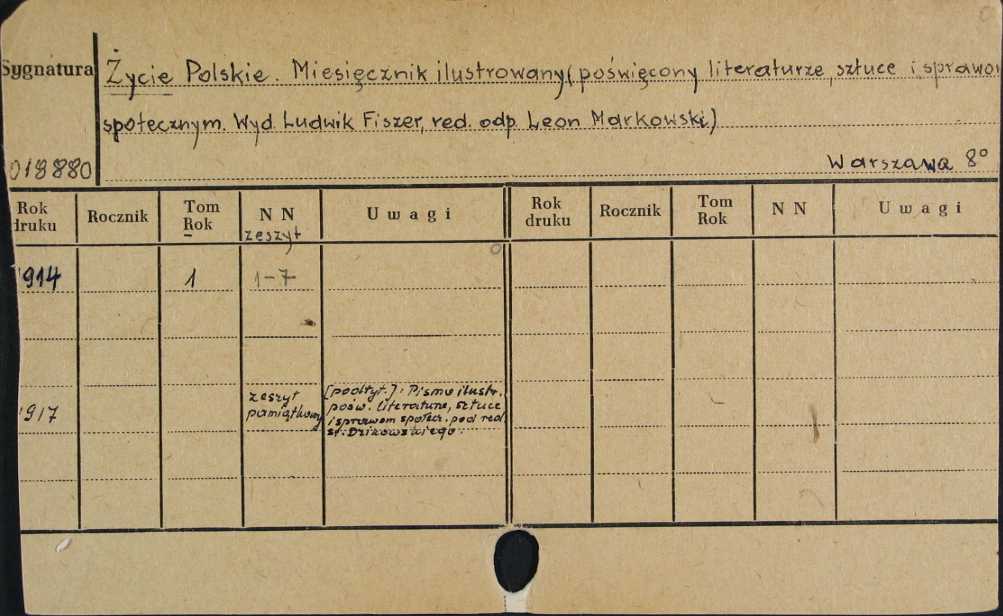 Sygnatura
Życie Polskie. Miesięcznik ilustrowany (poświęcony literaturze, sztuce i sprawom
społecznym. Wyd. Ludwik Fiszer, red. odp. Leon Markowski.)
019880 Warszawa 8°
Rok druku Rocznik Tom Rok N N zeszyt Uwagi Rok druku Rocznik Tom Rok N N Uwagi
1914 1 1-7
1917 zeszyt pamiątkowy
[podtyt.]: Pismo ilustr.
pośw. literaturze, sztuce
i sprawom społecz. pod red.
St. Dzikowskiego.